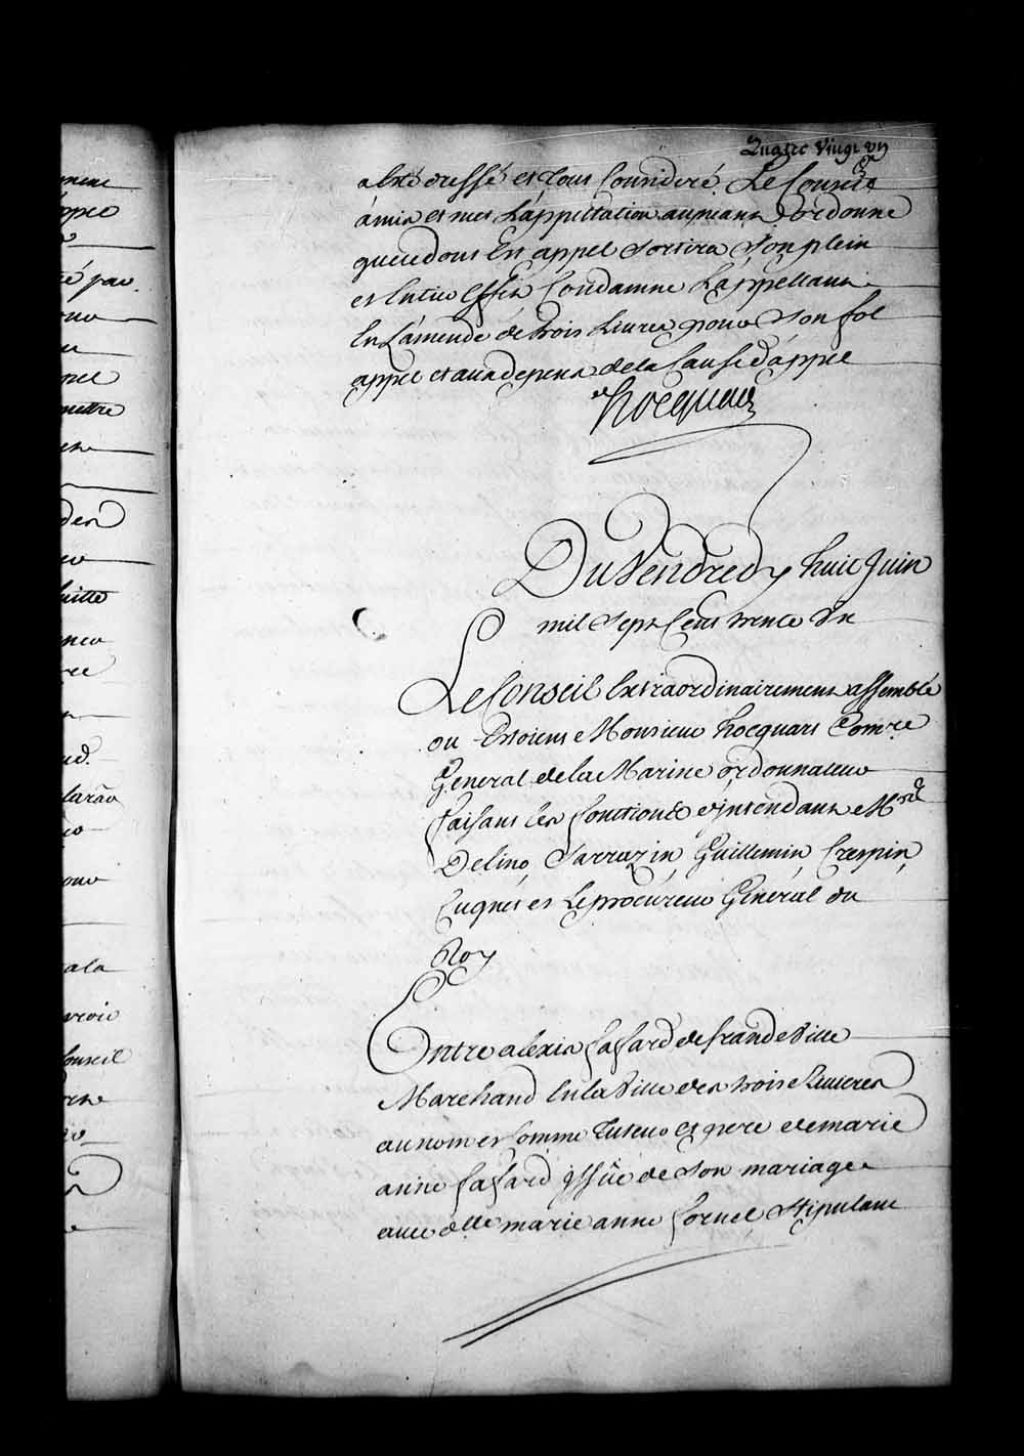 Quatre Vingt un
a Esté dressé et tout Consideré Le Conseil
a mis et met L'appellation au neant ordonne
que ce dont Est appel sortira son plein
et Entier Effet Condamne L'appellant
En L'amende de trois Livres pour son fol
appel et aux depens de la Cause d'appel
Hocquart
Du Vendredy huit Juin
mil sept Cent trente un
Le Conseil Extraordinairement assemblé
ou Estoient Monsieur hocquart Comre
General de la Marine ordonnateur
faisant les fonctions d'jntendant Mrs
Delino, Sarrazin, Guillemin, Crespin,
Cugnet et Le procureur General du
Roy
Entre alexis fafard de francheville
Marchand En la Ville des trois Rivieres
au nom et Comme Tuteur et pere de marie
anne fafard jssüe de son mariage
avec dlle marie anne fornel stipulant
mettre
Conseil